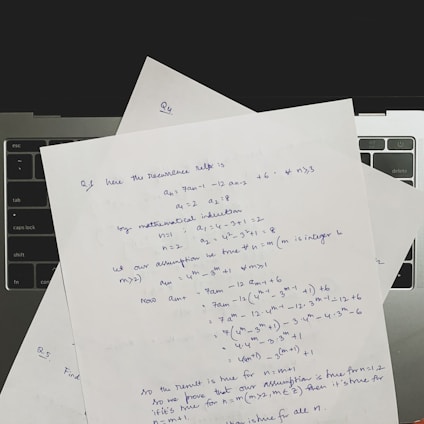 Q4
Q3 here the recurrence reln is
aₙ = 7aₙ₋₁ - 12 aₙ₋₂ + 6 · ∀ n≥3
a₁ = 2 a₂ = 8
by mathematical induction
n=1 : a₁ = 4-3+1 = 2
n=2 a₂ = 4² - 3² + 1 = 8
let our assumption is true ∀ n = m (m is integer &
m>2) aₘ = 4ᵐ - 3ᵐ + 1 ∀ m≥1
Now aₘ₊₁ = 7aₘ - 12 aₘ₋₁ + 6
= 7aₘ - 12 (4ᵐ⁻¹ - 3ᵐ⁻¹ + 1) + 6
= 7aᵐ - 12·4ᵐ⁻¹ - 12·3ᵐ⁻¹ - 12 + 6
= 7(4ᵐ - 3ᵐ + 1) - 3·4ᵐ - 4·3ᵐ - 6
= 4·4ᵐ - 3·3ᵐ + 1
= 4(ᵐ⁺¹) - 3(ᵐ⁺¹) + 1
So the result is true for n = m+1
So we prove that our assumption is true for n=1,2
if it's true for n = m (m>2, m∈Z) then it's true for
n = m+1.
is true for all n.
Q5
Find
esc
tab
caps lock
shift
fn
control
delete